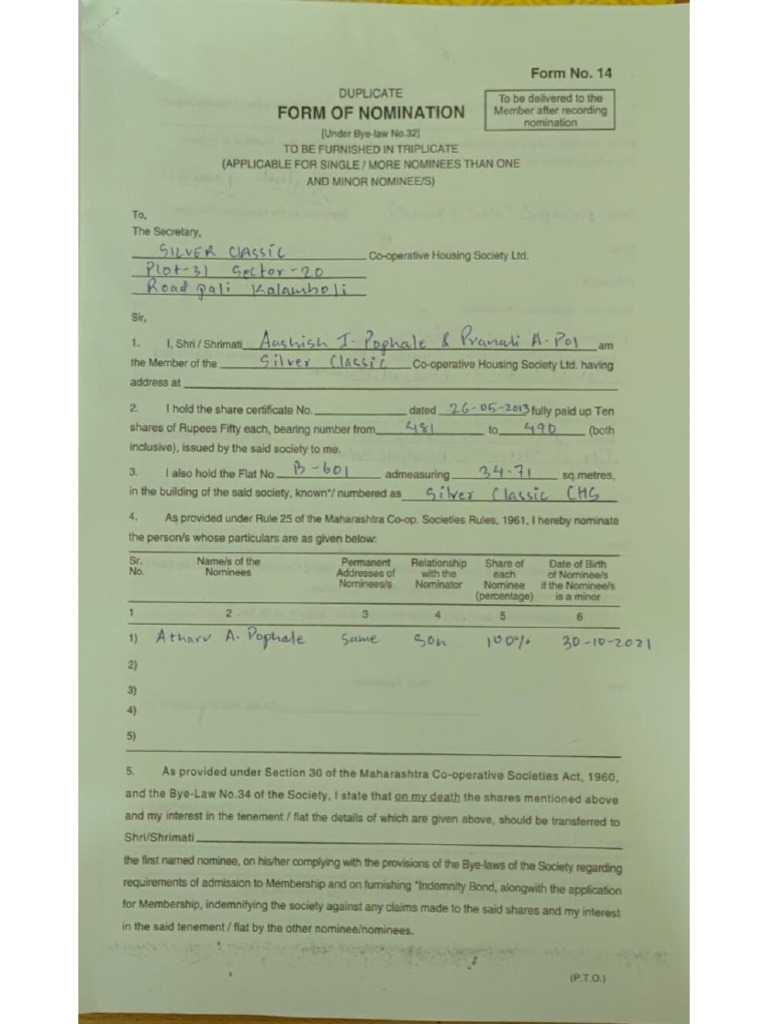 Form No. 14
DUPLICATE
FORM OF NOMINATION
To be delivered to the
Member after recording
nomination
[Under Bye-law No.32]
TO BE FURNISHED IN TRIPLICATE
(APPLICABLE FOR SINGLE / MORE NOMINEES THAN ONE
AND MINOR NOMINEE/S)
To,
The Secretary,
SILVER CLASSIC Co-operative Housing Society Ltd.
Plot-31 Sector-20
Road pali Kalamboli
Sir,
1. I, Shri / Shrimati Aashish I. Pophale & Pranali A. Pol am
the Member of the Silver Classic Co-operative Housing Society Ltd. having
address at
2. I hold the share certificate No. dated 26-05-2013 fully paid up Ten
shares of Rupees Fifty each, bearing number from 481 to 490 (both
inclusive), issued by the said society to me.
3. I also hold the Flat No B-601 admeasuring 34.71 sq.metres,
in the building of the said society, known*/ numbered as Silver Classic CHS
4. As provided under Rule 25 of the Maharashtra Co-op. Societies Rules, 1961, I hereby nominate
the person/s whose particulars are as given below:
Sr. Name/s of the Permanent Relationship Share of Date of Birth
No. Nominees Addresses of with the each of Nominee/s
Nominees/s Nominator Nominee if the Nominee/s
(percentage) is a minor
1 2 3 4 5 6
1) Atharv A. Pophale Same Son 100% 30-10-2021
2)
3)
4)
5)
5. As provided under Section 30 of the Maharashtra Co-operative Societies Act, 1960,
and the Bye-Law No.34 of the Society, I state that on my death the shares mentioned above
and my interest in the tenement / flat the details of which are given above, should be transferred to
Shri/Shrimati
the first named nominee, on his/her complying with the provisions of the Bye-laws of the Society regarding
requirements of admission to Membership and on furnishing *Indemnity Bond, alongwith the application
for Membership, indemnifying the society against any claims made to the said shares and my interest
in the said tenement / flat by the other nominee/nominees.
(P.T.O.)